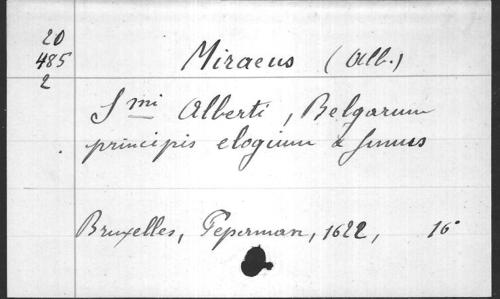 20
485
2
Miraeus (Alb.)
Smi Alberti, Belgarum
principis elogium & funus
Bruxelles, Peperman, 1622, 16°